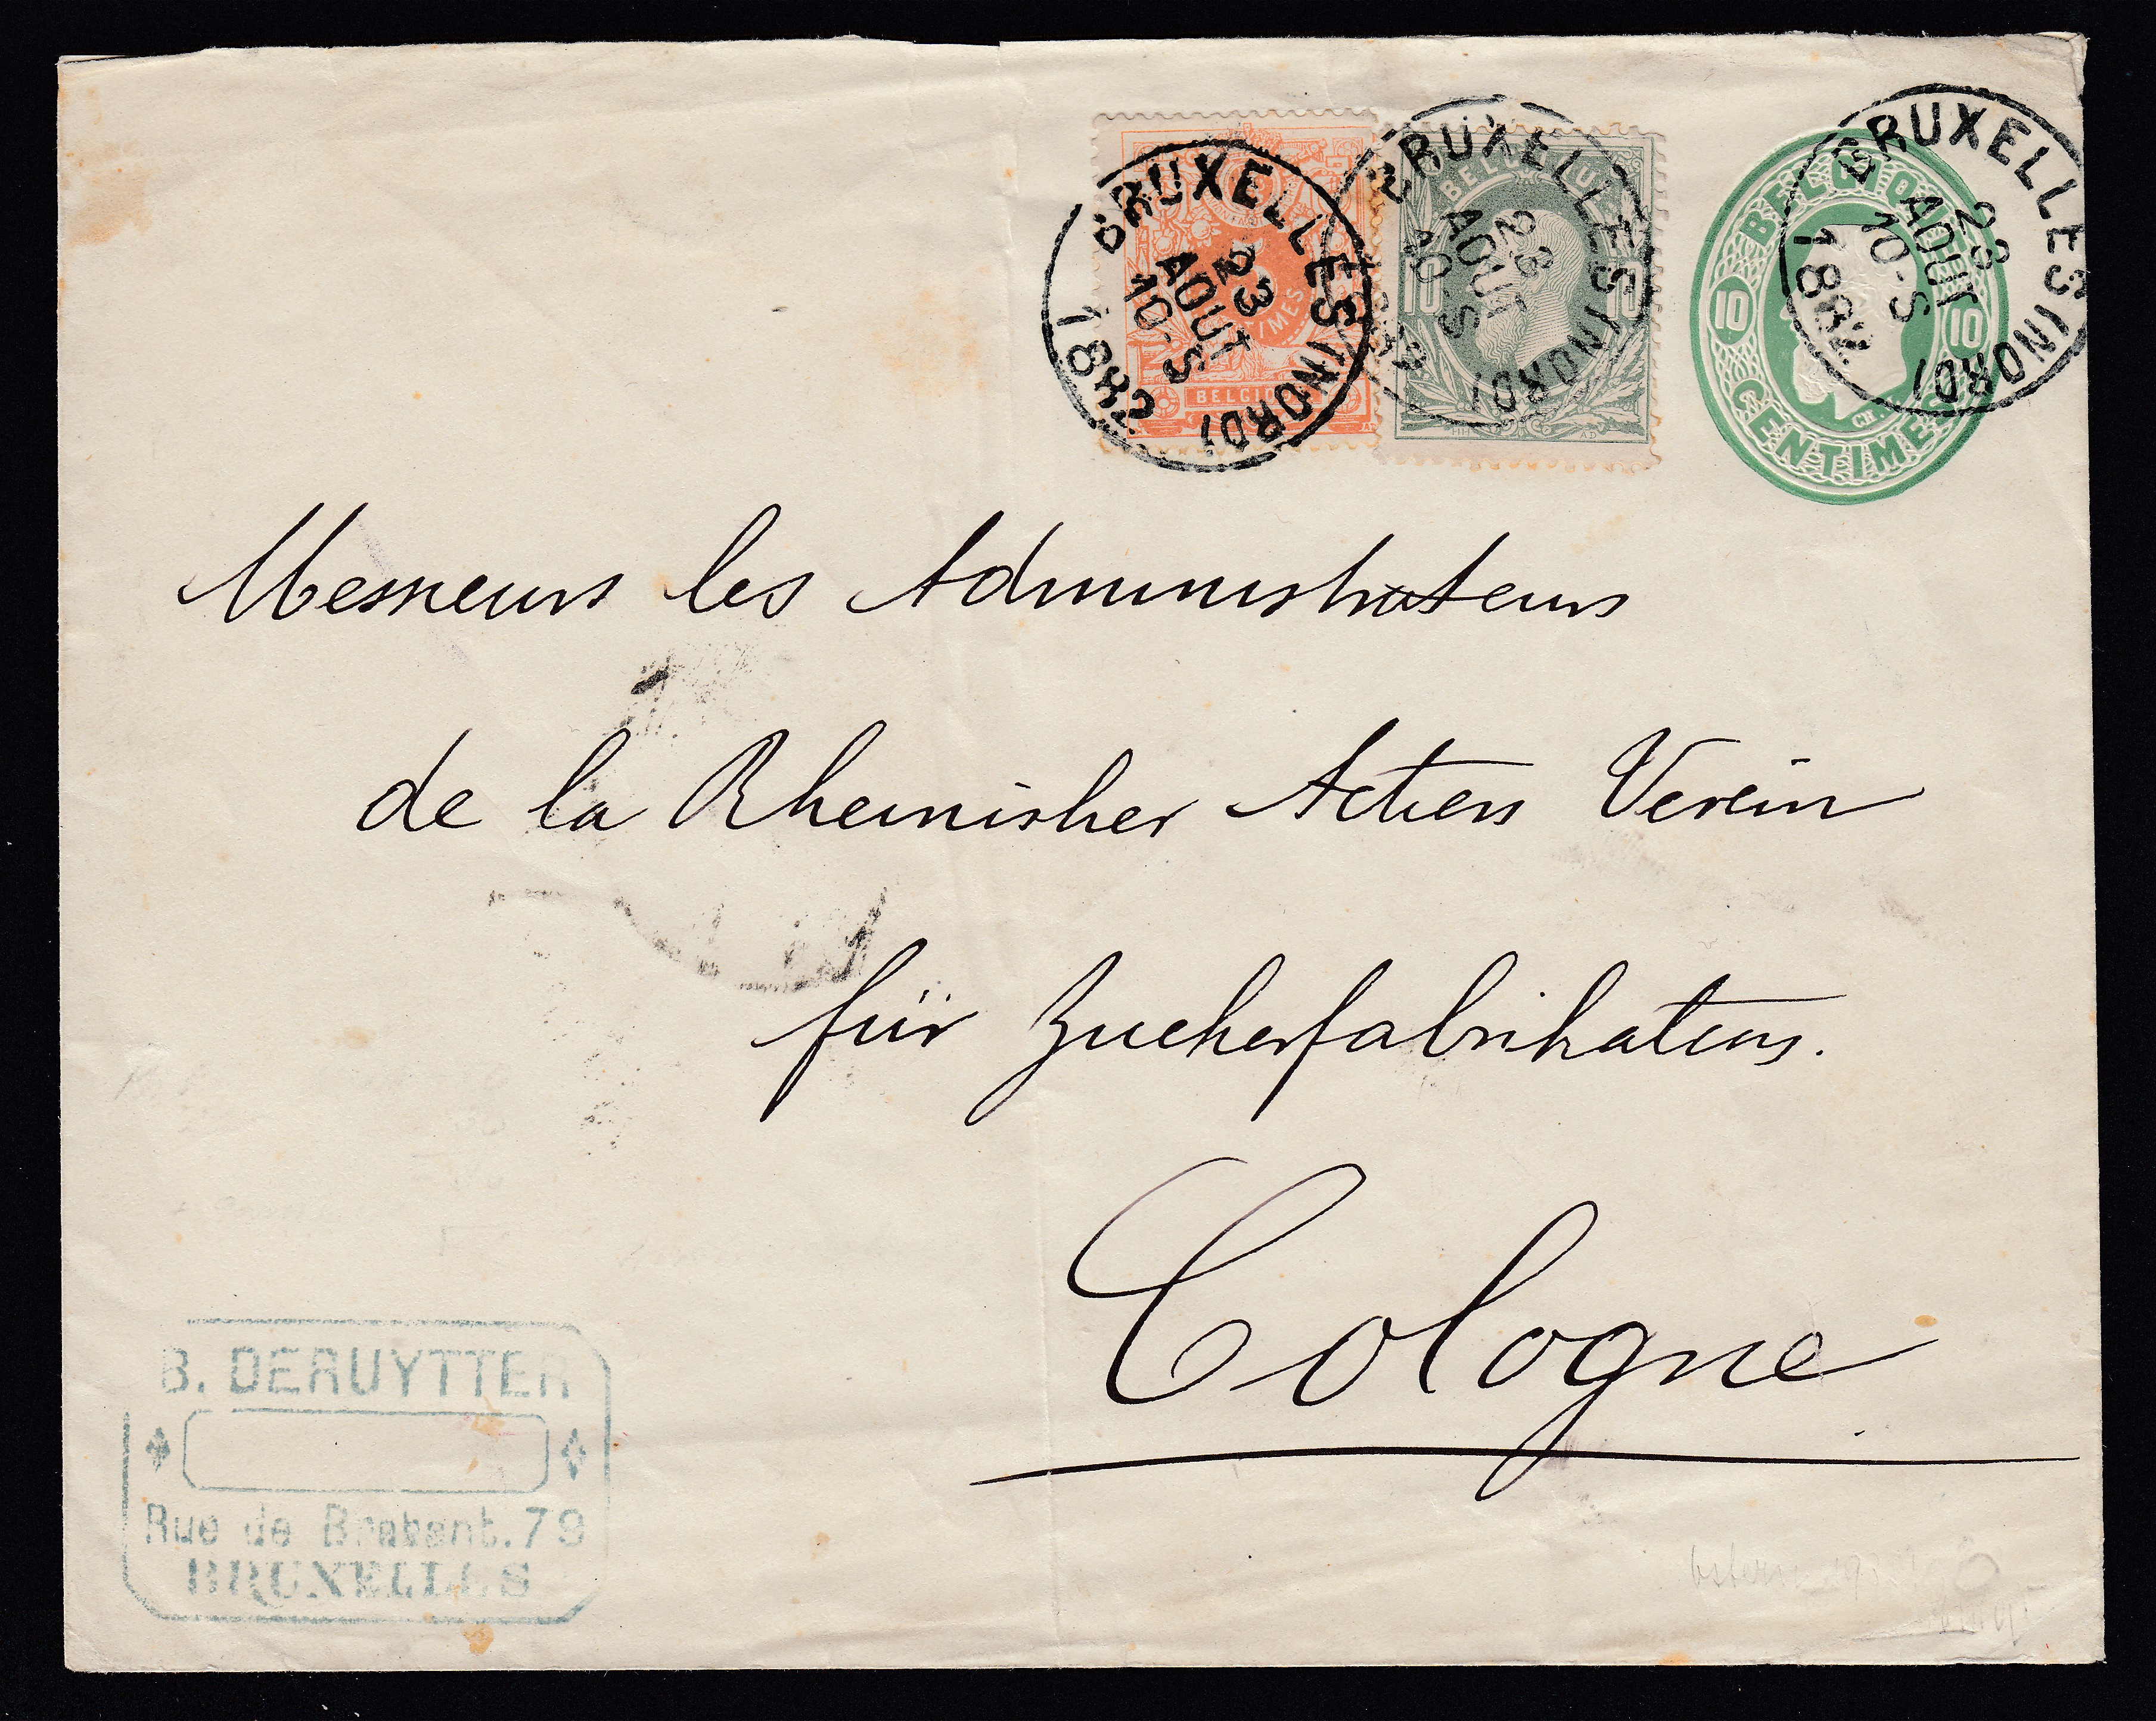 BRUXELLES (NORD)
23
AOUT
10-S
1882
BELGIQUE
BRUXELLES (NORD)
23
AOUT
10-S
BELGIQUE
10 10
BRUXELLES (NORD)
23
AOUT
10-S
1882
BELGIQUE
10 10
CENTIMES
Messieurs les Administrateurs
de la Rheinisher Actien Verein
für Zuckerfabrikation.
Cologne
B. DERUYTTER
Rue de Brabant. 79
BRUXELLES